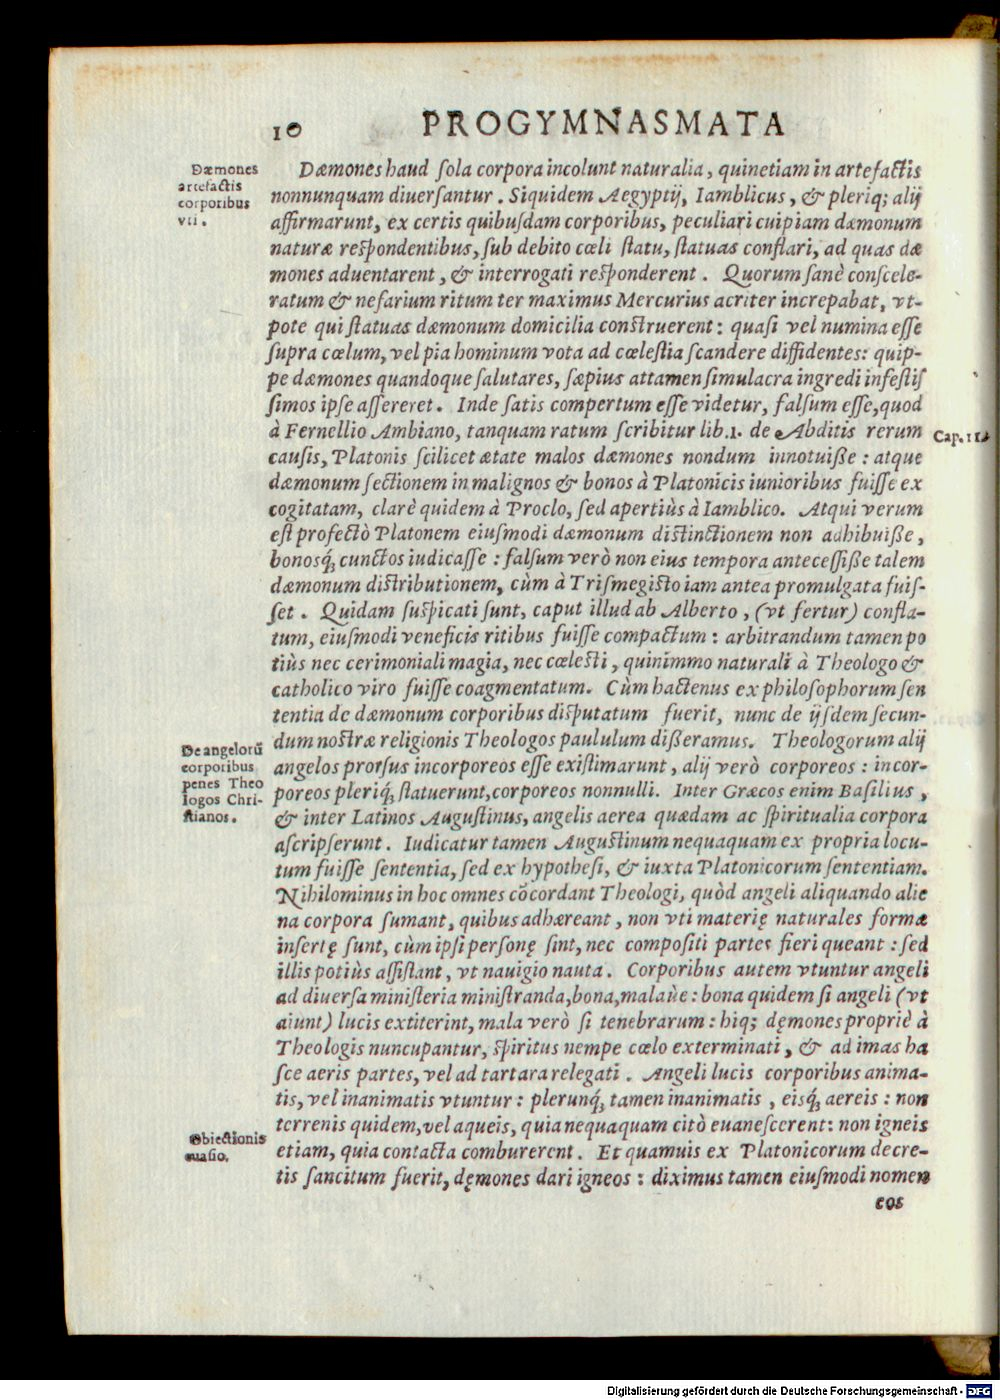 10 PROGYMNASMATA
Dæmones
artefactis
corporibus
vti.
Dæmones haud ſola corpora incolunt naturalia, quinetiam in artefactis
nonnunquam diuerſantur. Siquidem Aegyptij, Iamblicus, & pleriq; alij
affirmarunt, ex certis quibuſdam corporibus, peculiari cuipiam dæmonum
naturæ reſpondentibus, ſub debito cœli ſtatu, ſtatuas conflari, ad quas dæ
mones aduentarent, & interrogati reſponderent. Quorum ſanè conſcele-
ratum & nefarium ritum ter maximus Mercurius acriter increpabat, vt-
pote qui ſtatuas dæmonum domicilia construerent: quaſi vel numina eſſe
ſupra cœlum, vel pia hominum vota ad cœleſtia ſcandere diffidentes: quip-
pe dæmones quandoque ſalutares, ſæpius attamen ſimulacra ingredi infeſtiſ
ſimos ipſe aſſereret. Inde ſatis compertum eſſe videtur, falſum eſſe, quod
à Fernellio Ambiano, tanquam ratum ſcribitur lib.1. de Abditis rerum
Cap. 11.
cauſis, Platonis ſcilicet ætate malos dæmones nondum innotuiße: atque
dæmonum ſectionem in malignos & bonos à Platonicis iunioribus fuiſſe ex
cogitatam, clarè quidem à Proclo, ſed apertiùs à Iamblico. Atqui verum
eſt profectò Platonem eiuſmodi dæmonum distinctionem non adhibuiße,
bonosq́; cunctos iudicaſſe: falſum verò non eius tempora anteceſſiße talem
dæmonum distributionem, cùm à Triſmegisto iam antea promulgata fuiſ-
ſet. Quidam ſuſpicati ſunt, caput illud ab Alberto, (vt fertur) confla-
tum, eiuſmodi veneficis ritibus fuiſſe compactum: arbitrandum tamen po
tiùs nec cerimoniali magia, nec cœlesti, quinimmo naturali à Theologo &
catholico viro fuiſſe coagmentatum. Cùm hactenus ex philoſophorum ſen
tentia de dæmonum corporibus diſputatum fuerit, nunc de ijſdem ſecun-
dum nostræ religionis Theologos paululum dißeramus. Theologorum alij
De angelorũ
corporibus
penes Theo
logos Chri-
stianos.
angelos prorſus incorporeos eſſe exiſtimarunt, alij verò corporeos: incor-
poreos pleriq́; ſtatuerunt, corporeos nonnulli. Inter Græcos enim Baſilius,
& inter Latinos Auguſtinus, angelis aerea quædam ac ſpiritualia corpora
aſcripſerunt. Iudicatur tamen Augustinum nequaquam ex propria locu-
tum fuiſſe ſententia, ſed ex hypotheſi, & iuxta Platonicorum ſententiam.
Nihilominus in hoc omnes cõcordant Theologi, quòd angeli aliquando alie
na corpora ſumant, quibus adhæreant, non vti materię naturales formæ
inſertę ſunt, cùm ipſi perſonę ſint, nec compoſiti partes fieri queant: ſed
illis potiùs aſſiſtant, vt nauigio nauta. Corporibus autem vtuntur angeli
ad diuerſa miniſteria miniſtranda, bona, malaùe: bona quidem ſi angeli (vt
aiunt) lucis extiterint, mala verò ſi tenebrarum: hiq; dęmones propriè à
Theologis nuncupantur, ſpiritus nempe cœlo exterminati, & ad imas ha
ſce aeris partes, vel ad tartara relegati. Angeli lucis corporibus anima-
tis, vel inanimatis vtuntur: plerunq́; tamen inanimatis, eisq́; aereis: non
terrenis quidem, vel aqueis, quia nequaquam citò euaneſcerent: non igneis
Obiectionis
euasio.
etiam, quia contacta comburerent. Et quamuis ex Platonicorum decre-
tis ſancitum fuerit, dęmones dari igneos: diximus tamen eiuſmodi nomen
eos
Digitalisierung gefördert durch die Deutsche Forschungsgemeinschaft - DFG